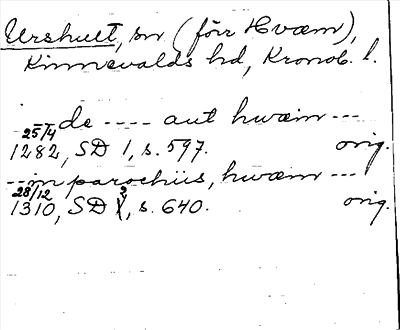 Urshult, sn (förr Hvæm),
Kinnevalds hd, Kronob. l.
--- de ---- aut hwæm ---
25/4
1282, SD 1, s. 597. orig.
--- in parochiis, hwæm ---
28/12
1310, SD 2, s. 640. orig.